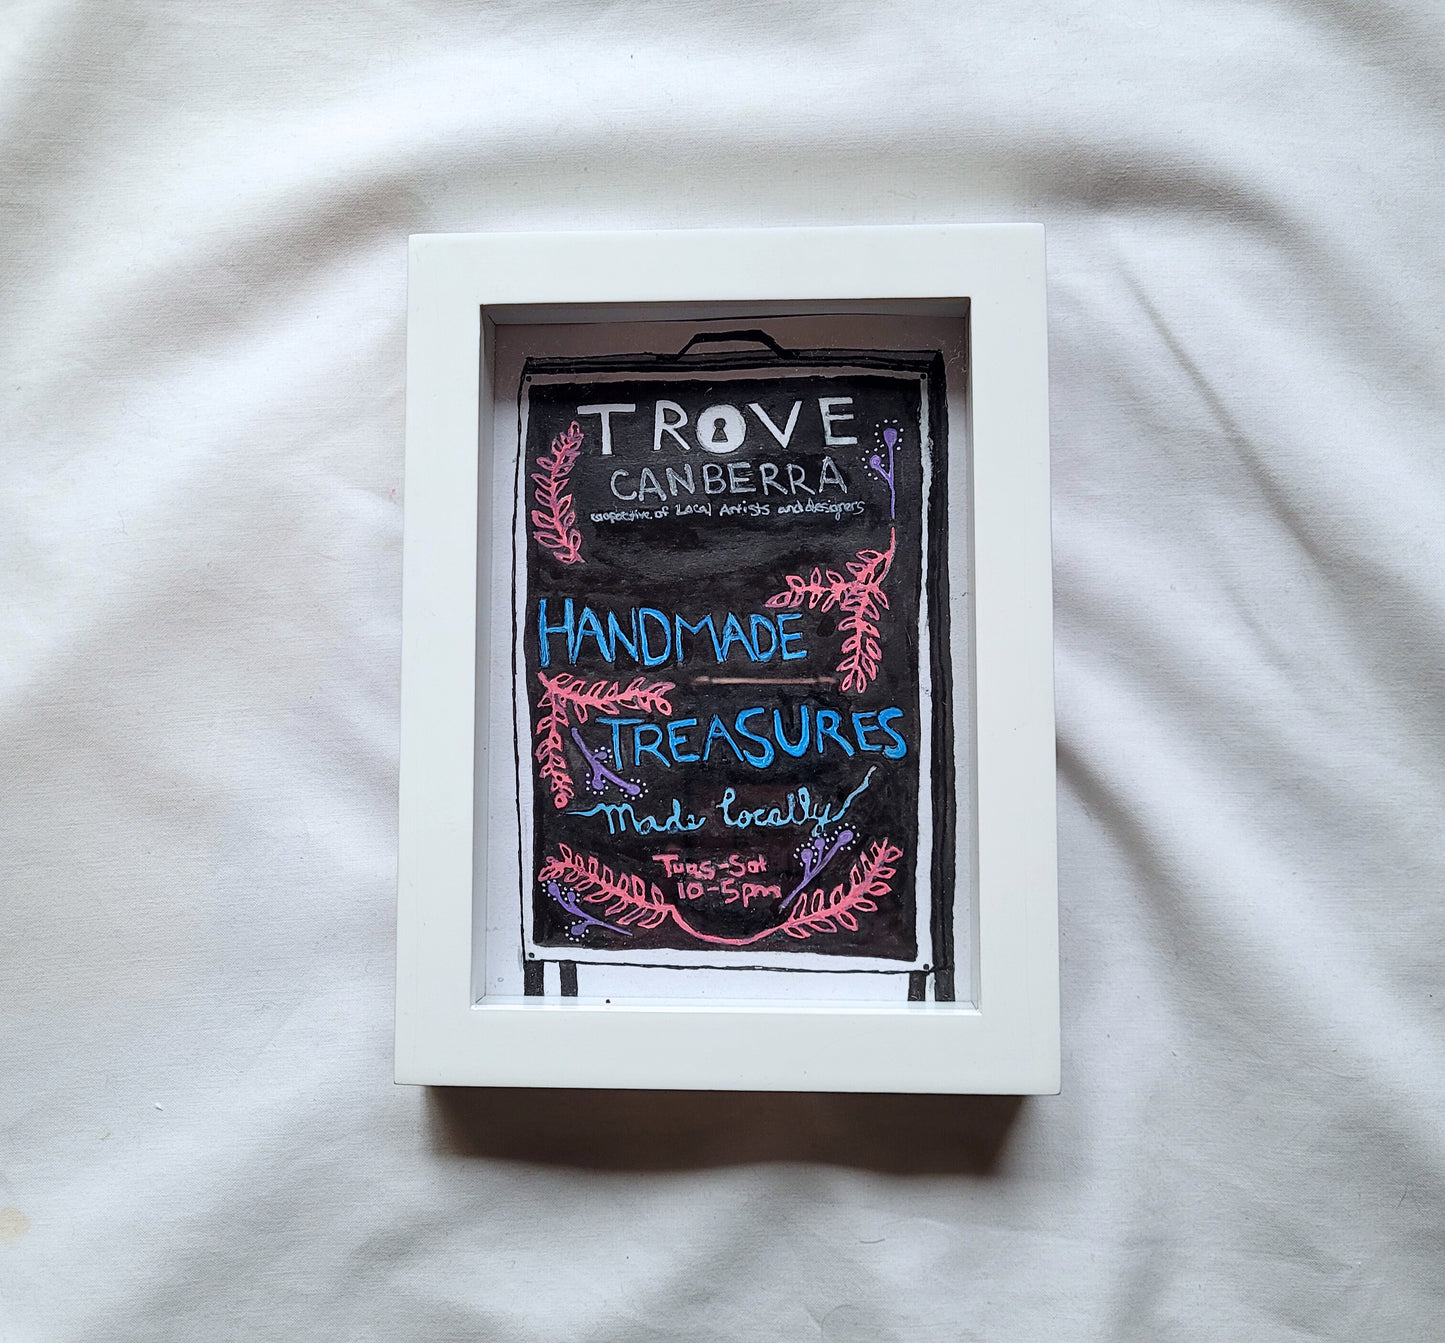 TROVE
CANBERRA
cooperative of Local Artists and designers
HANDMADE
TREASURES
Made locally
Tues-Sat
10-5pm